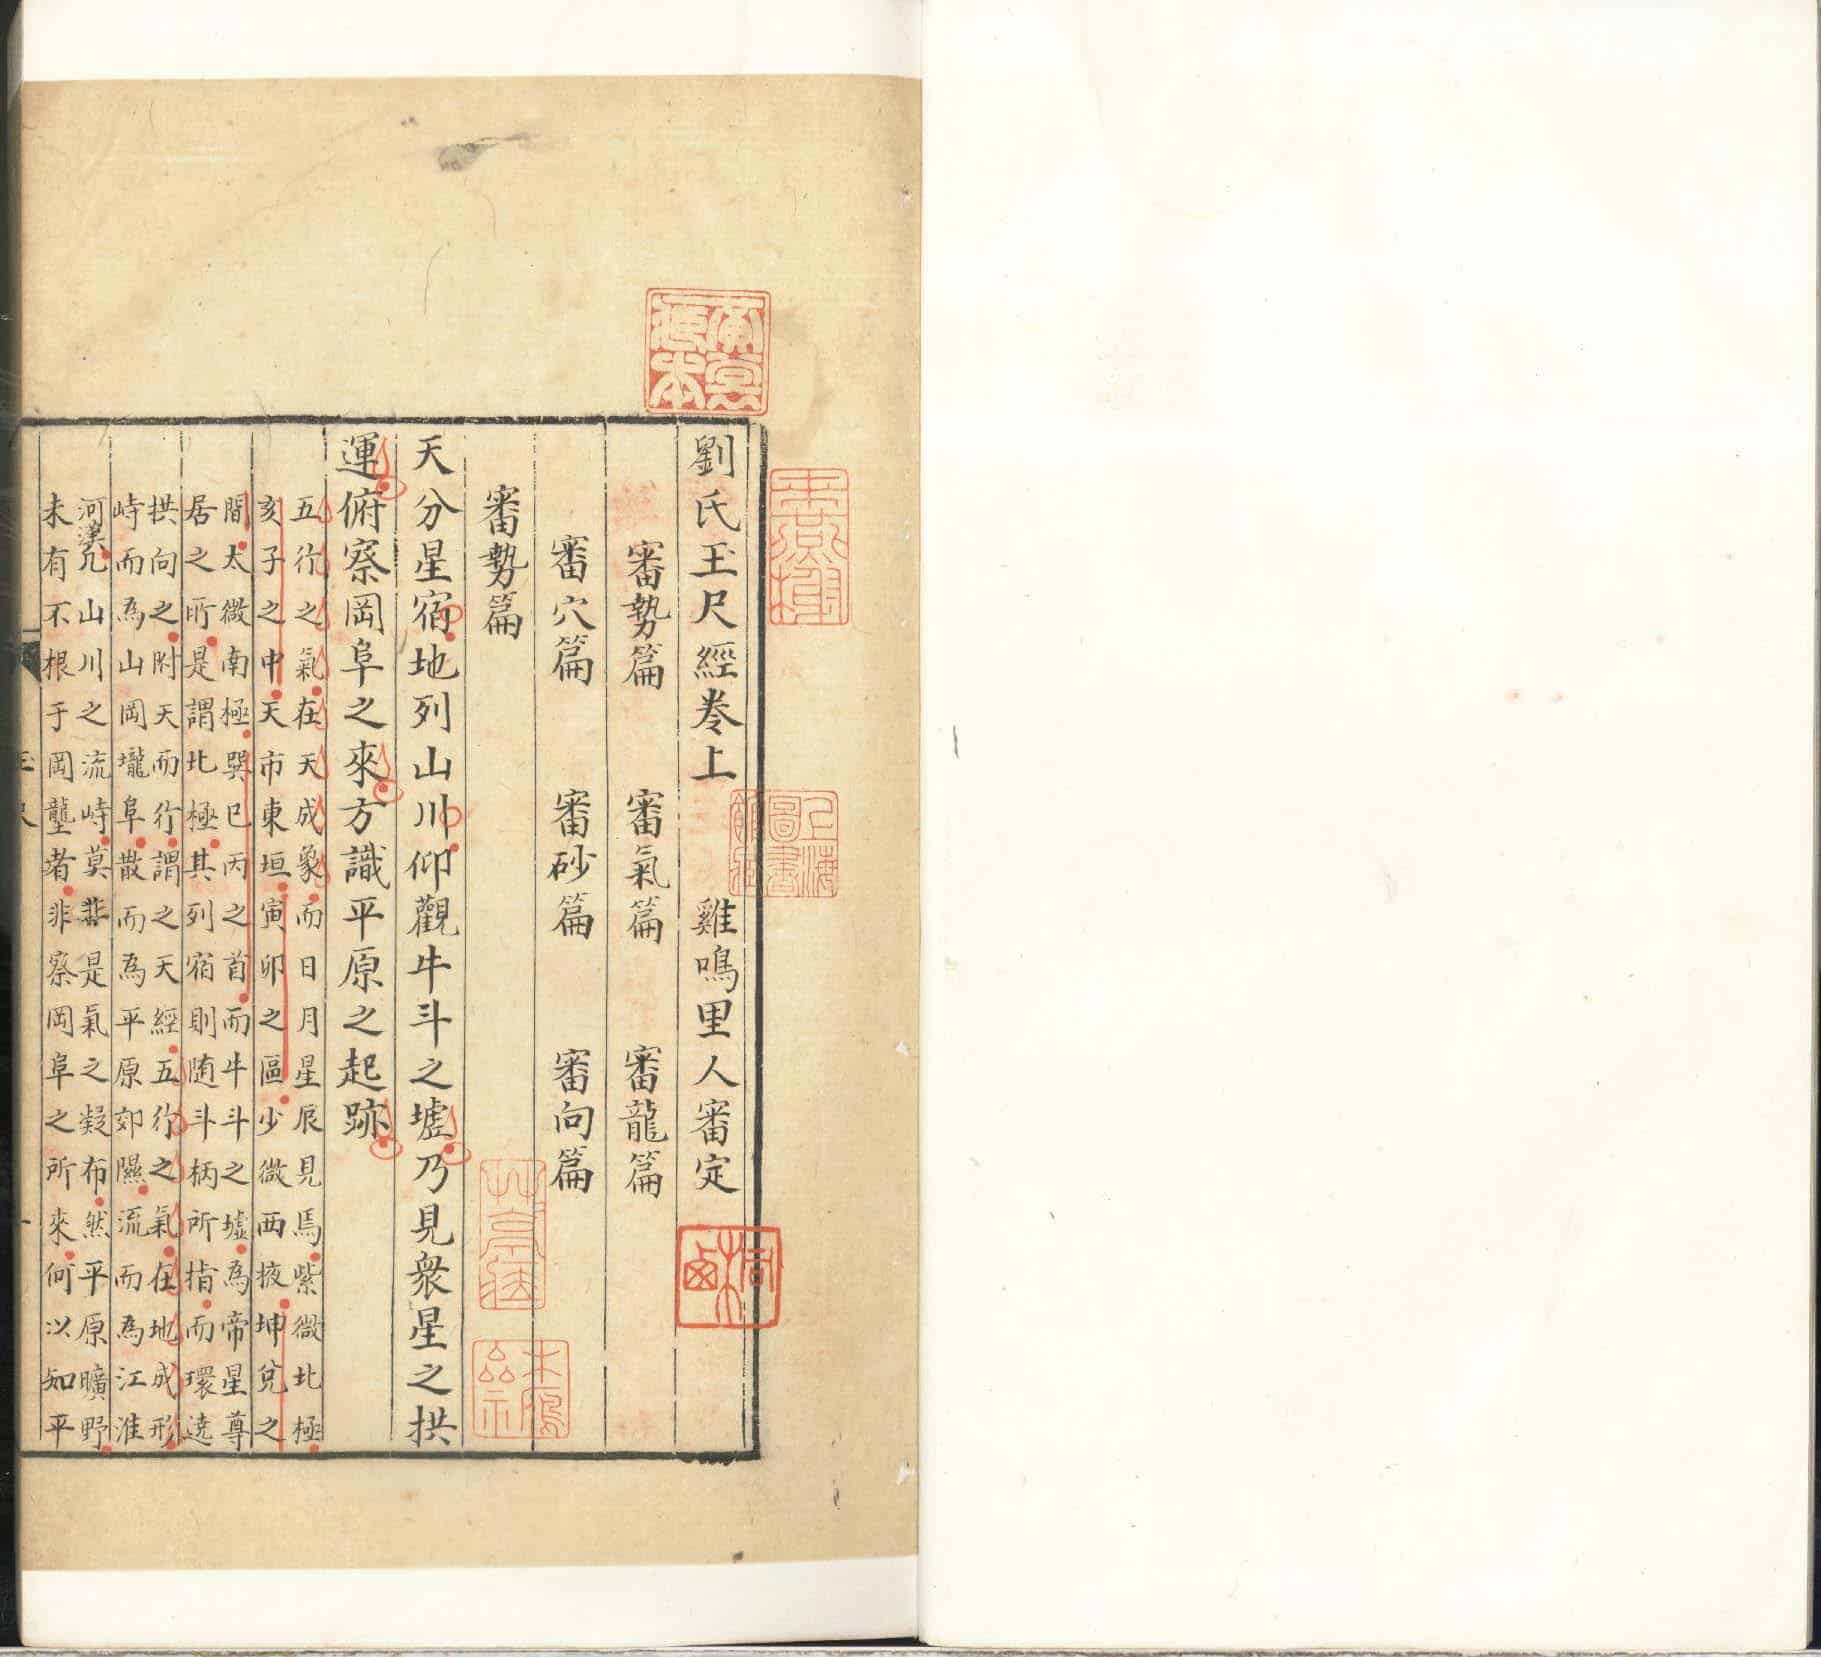 劉氏玉尺經卷上　雞鳴里人審定
審勢篇　審氣篇　審龍篇
審穴篇　審砂篇　審向篇
審勢篇
天分星宿地列山川仰觀牛斗之墟乃見衆星之拱
運俯察岡阜之來方識平原之起跡
五行之氣在天成象而日月星辰見焉紫微北極
亥子之中天市東垣寅卯之區少微西掖坤兌之
間太微南極巽巳丙之首而牛斗之墟為帝星尊
居之所是謂北極其列宿則随斗柄所指而環遶
拱向之附天而行謂之天經五行之氣在地成形
峙而為山岡壠阜散而為平原郊隰流而為江淮
河漢凡山川之流峙莫非是氣之凝布然平原曠野
未有不根于岡壟者非察岡阜之所來何以知平
上海圖書館藏